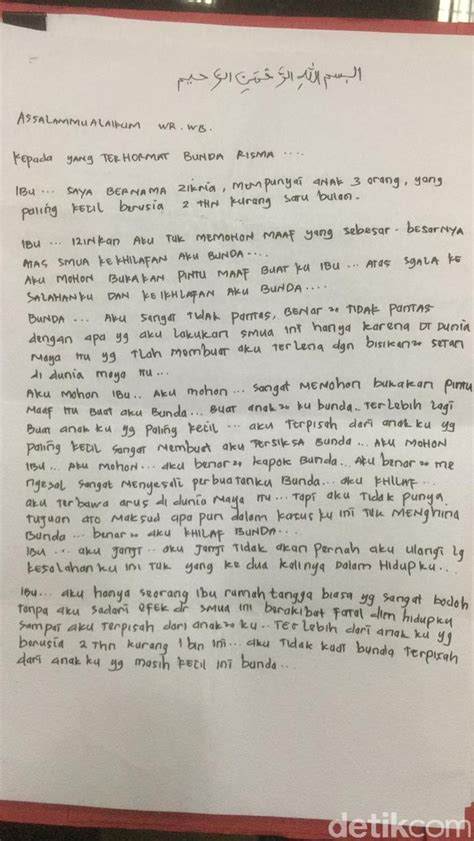 البسم الله الرَّحْمَنِ الرَّحيم
ASSALAMMUALAIKUM WR. WB.
Kepada YANG TERHORMAT BUNDA RISMA ....
IBU ... SAYA BERNAMA ZIKRIA, MEMPUNYAI ANAK 3 ORANG, yang
paling KECIL berusia 2 THN KURANG SATU bulan.
IBU ... IZINKAN AKU TUK MEMOHON MAAF yang sebesar-besarnya
ATAS SMUA KEKHILAFAN AKU BUNDA....
AKU MOHON BUKAKAN PINTU MAAF BUAT KU IBU ... ATAS SGALA KE
SALAHANKU DAN KEIKHLAFAN AKU BUNDA....
BUNDA ... AKU SANGAT TIDAK PANTAS, BENAR 20 TIDAK PANTAS
dengan apa yg aku lakukan smua ini hanya karena DI DUNIA
MAYA ITU yg TLAH MEMBUAT AKU TERLENA dgn BISIKAN 20 SETAN
di dunia maya itu...
AKU MOHON IBU.. AKU MOHON... SANGAT MEMOHON BUKAKAN PINTU
MAAF ITU BUAT AKU BUNDA... BUAT ANAK 20 KU BUNDA.. TERLEBIH LAGI
BUAT ANAK KU yg PALING KECIL ... AKU TERPISAH DARI ANAK KU yg
paling KECIL SANGAT MEMBUAT AKU TERSIKSA BUNDA... AKU MOHON
IBU ... AKU MOHON... AKU BENAR 20 KAPOK BUNDA.. AKU BENAR 20 ME
NGESAL SANGAT MENYESALI PERBUATANKU BUNDA... AKU KHILAF...
AKU TERBAWA ARUS DI DUNIA MAYA ITU... TAPI AKU TIDAK PUNYA
TUJUAN ATO MAKSUD APA PUN DALAM KASUS KU INI TUK MENGHINA
BUNDA ... BENAR 20 AKU KHILAF BUNDA....
IBU ... AKU JANJI.. AKU JANJI TIDAK AKAN PERNAH AKU ULANGI Lg
KESALAHAN KU INI TUK yang KE DUA KALINYA DALAM HIDUPKU....
IBU... AKU HANYA SEORANG IBU RUMAH TANGGA BIASA yg SANGAT BODOH
TANPA AKU SADARI EFEK dr SMUA INI BERAKIBAT FATAL dlm HIDUPKU
SAMPAI AKU TERPISAH dari ANAK 20 KU.. TERLEBIH dari ANAK KU yg
BERUSIA 2 THN KURANG 1 bln INI... AKU TIDAK bunda TERPISAH
dari ANAK KU yg MASIH KECIL INI bunda...
detikcom